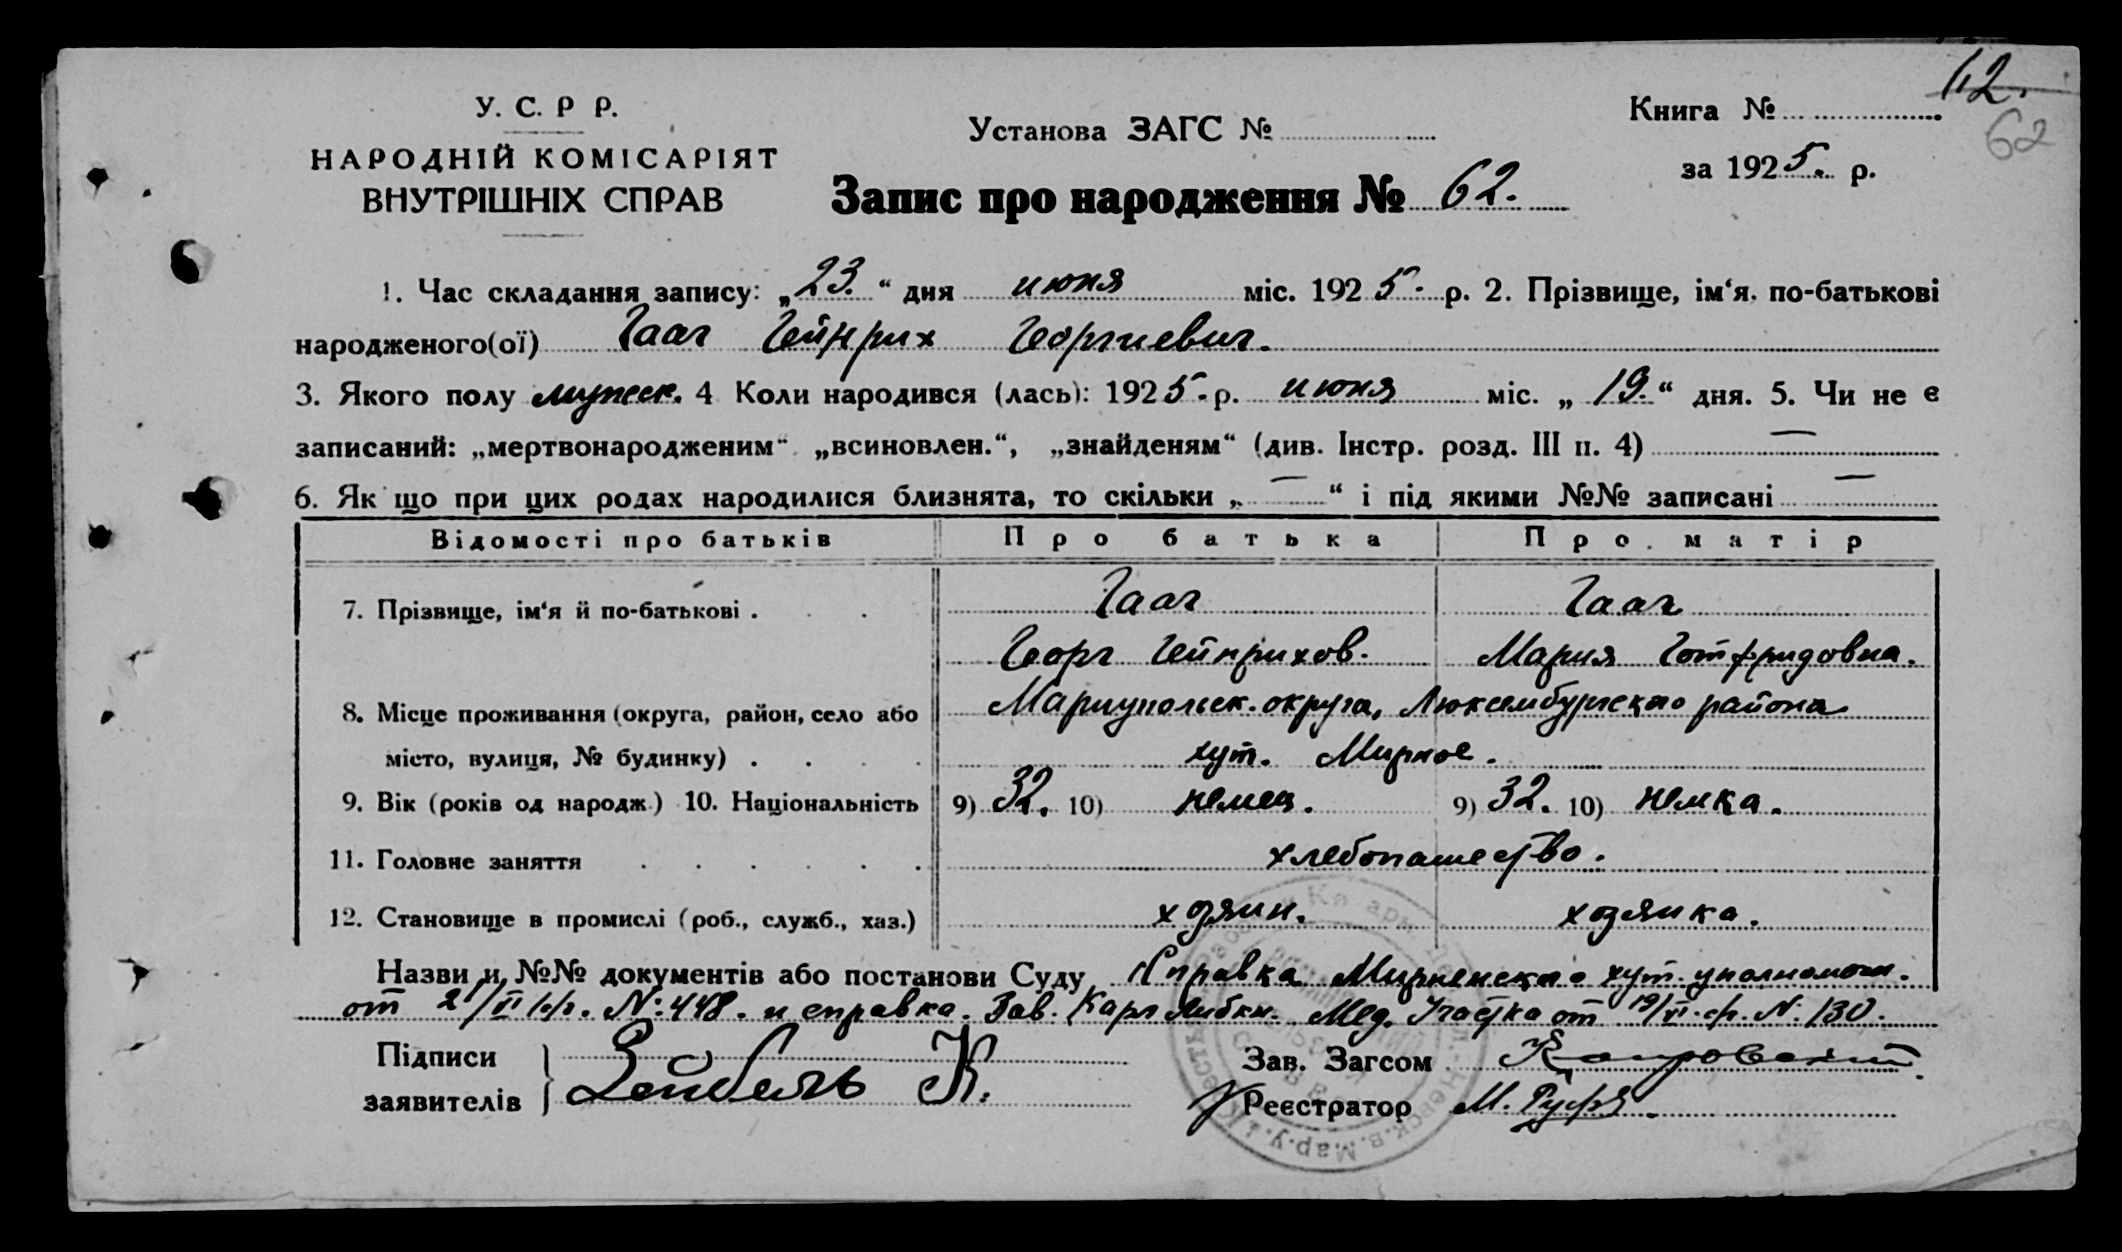 У. С. Р Р.
НАРОДНІЙ КОМІСАРІЯТ
ВНУТРІШНІХ СПРАВ
Установа ЗАГС №
Запис про народження № 62.
62.
Книга №
62
за 1925. р.
1. Час складання запису: „23.“ дня июня міс. 1925. р. 2. Прізвище, ім‘я, по-батькові
народженого(ої) Гааг Гейнрих Георгиевич.
3. Якого полу мужеск. 4 Коли народився (лась): 1925. р. июня міс. „19.“ дня. 5. Чи не є
записаний: „мертвонародженим“ „всиновлен.“, „знайденям“ (див. Інстр. розд. III п. 4) —
6. Як що при цих родах народилися близнята, то скільки „—“ і під якими №№ записані —
Відомості про батьків Про батька Про матір
7. Прізвище, ім‘я й по-батькові . . . Гааг Гааг
Георг Гейнрихов. Мария Готфридовна.
8. Місце проживання (округа, район, село або Мариупольск. округа, Люксембургского района
місто, вулиця, № будинку) . . . . хут. Мирное.
9. Вік (років од народж.) 10. Національність 9) 32. 10) немец. 9) 32. 10) немка.
11. Головне заняття . . . . . . хлебопашество.
12. Становище в промислі (роб., служб., хаз.) хозяин. хозяйка.
Назви и №№ документів або постанови Суду Справка Мирненского хут. уполномоч.
от 2/VI с/г. №: 448. и справка. Зав. Карл Либкн. Мед. Участка от 19/VI с.г. N. 130.
Підписи
заявителів } Зейбель К.
Зав. Загсом
Реєстратор М.